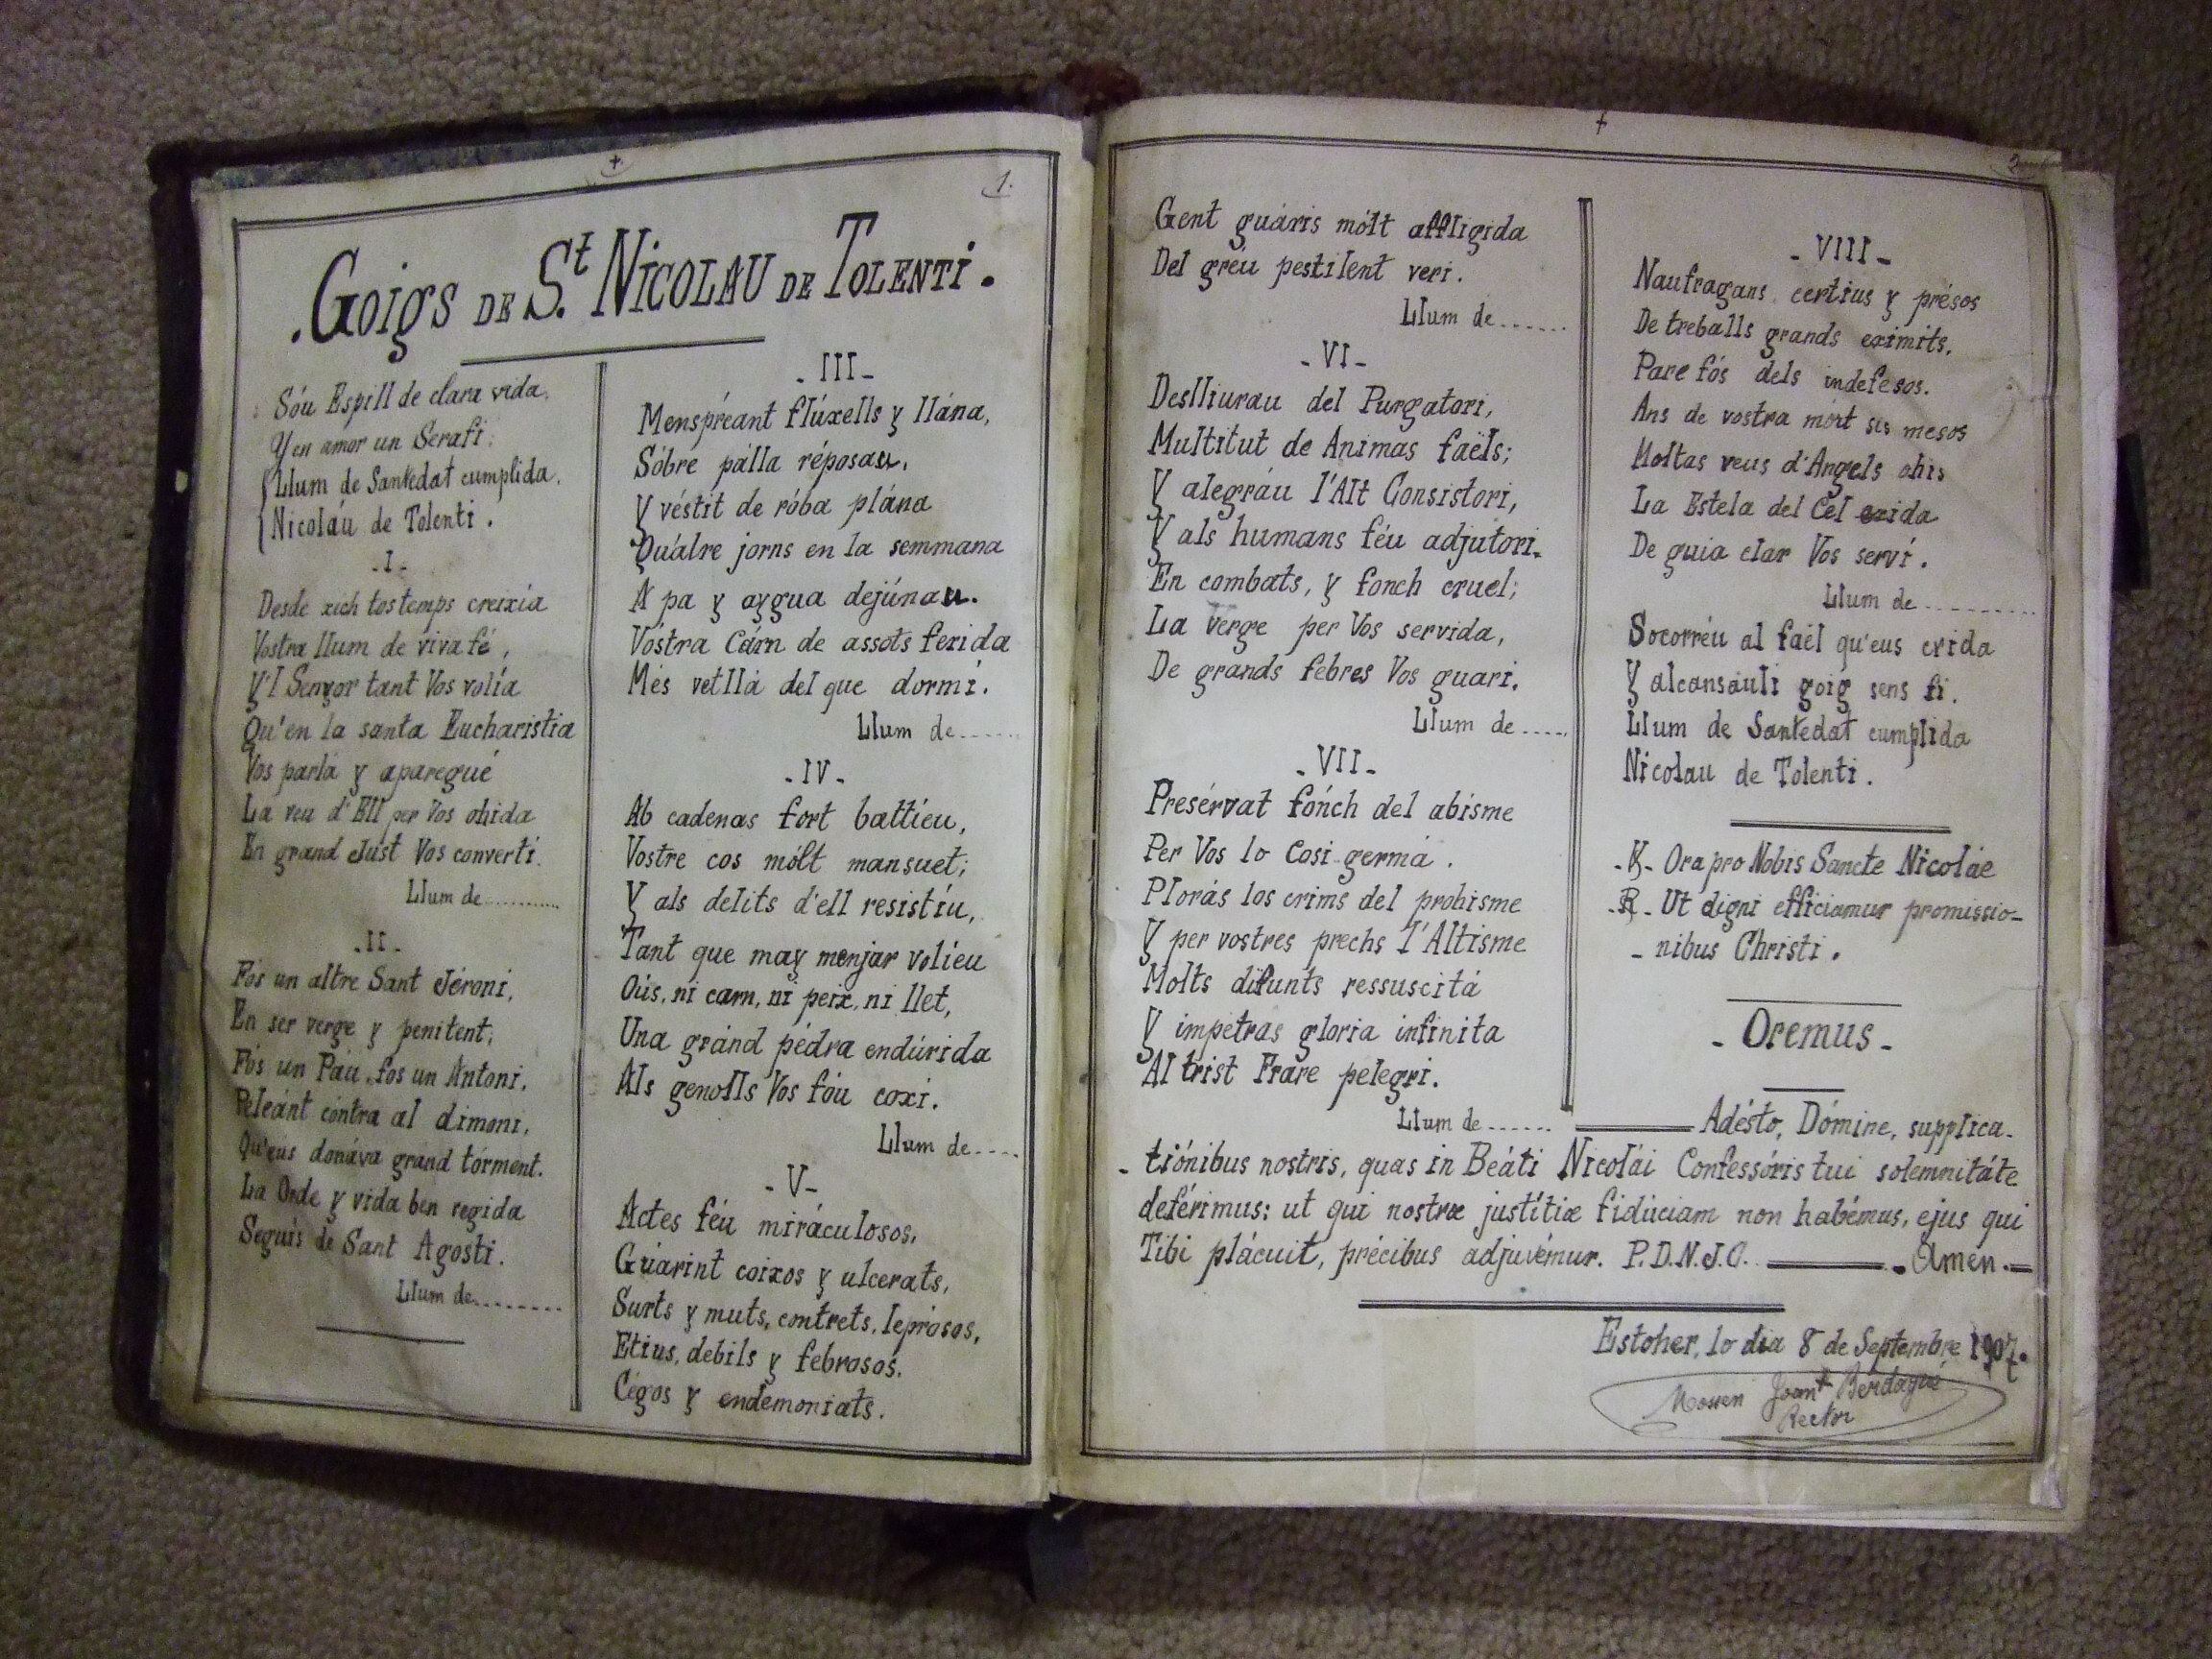 +
1.
.Goigs de S.t Nicolau de Tolenti.
Sóu Espill de clara vida,
Y en amor un Serafi:
Llum de Santedat cumplida,
Nicoláu de Tolenti.
-I-
Desde xich tostemps creixia
Vostra llum de viva fé,
Y'l Senyor tant Vos volía
Qu'en la santa Eucharistia
Vos parlá y aparegué
La veu d'Ell per Vos ohida
En grand Just Vos convertí.
Llum de...........
-II-
Fós un altre Sant Jéroni,
En ser verge y penitent;
Fós un Páu, fos un Antoni,
Peleánt cóntra al dimoni,
Qu'eus donáva grand tórment.
La Orde y vida ben regida
Seguis de Sant Agosti.
Llum de........
-III-
Menspréant flúxells y llána,
Sóbre pálla réposau,
Y véstit de róba plána
Quálre jorns en la semmana
A pa y aygua dejúnau.
Vóstra Cárn de assots ferida
Més vetllá del que dormí.
Llum de......
-IV-
Ab cadenas fort battieu,
Vostre cos mólt mansuet;
Y als delits d'ell resistíu,
Tant que may menjar volieu
Oús, ni carn, ni peix, ni llet,
Una gránd pédra endúrida
Als genolls Vos féu coxi.
Llum de....
-V-
Actes féu miráculosos,
Guárint coixos y ulcerats,
Surts y muts, contrets, leprósos,
Etius, debils y febrosos,
Cégos y endemoniats.
+
2
Gent guáris mólt affligida
Del gréu pestilent veri.
Llum de......
-VI-
Deslliurau del Purgatori,
Multitut de Animas faëls;
Y alegráu l'Alt Consistori,
Y als humans féu adjutori.
En combats, y fonch cruel;
La Verge per Vos servida,
De grands febres Vos guari.
Llum de.....
-VII-
Presérvat fónch del abisme
Per Vos lo Cosi germá.
Plorás los crims del prohisme
Y per vostres prechs l'Altisme
Molts difunts ressuscitá
Y impetras gloria infinita
Al trist Frare pelegri.
Llum de......
-VIII-
Naufragans certius y présos
De treballs grands eximits,
Pare fós dels indefesos.
Ans de vostra mórt sis mesos
Moltas veus d'Angels ohis
La Estela del Cel exida
De guia clar Vos serví.
Llum de..........
Socorréu al faël qu'eus crida
Y alcansáuli goig sens fi.
Llum de Santedat cumplida
Nicolau de Tolenti.
-℣- Ora pro Nobis Sancte Nicoláe
-℟- Ut digni efficiamur promissio-
-nibus Christi.
-Oremus-
Adésto, Dómine, supplica-
-tiónibus nostris, quas in Beáti Nicolái Confessóris tui solemnitáte
deférimus: ut qui nostræ justítiæ fidúciam non habémus, ejus qui
Tibi plácuit, précibus adjuvémur. P.D.N.J.C. Amen.
Estoher, lo dia 8 de Septembre 1907.
Mossen Joan Berdagué
Rector